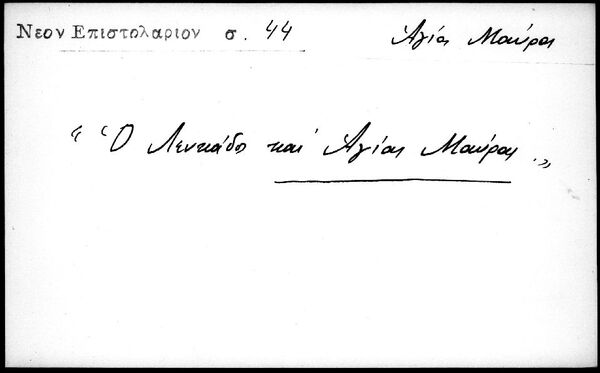 Νεον Επιστολαριον σ. 44 Ἁγίας Μαύρας
“ Ὁ Λευκάδος καὶ Ἁγίας Μαύρας.„